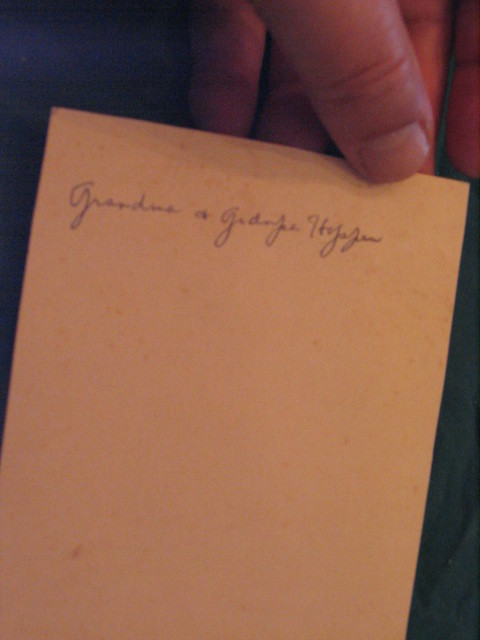 Grandma & Grandpa Hoppen